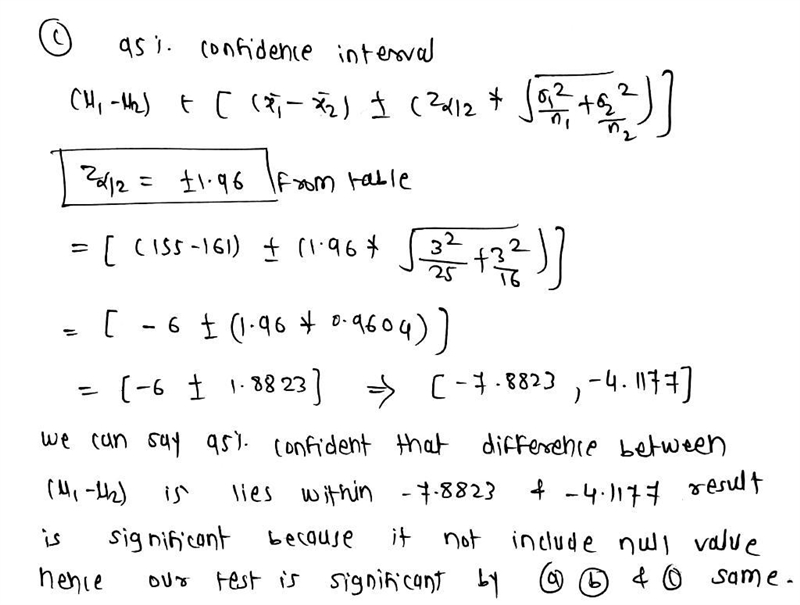 (c) 95%. confidence interval
(μ₁-μ₂) ± [ (x̄₁ - x̄₂) ± (Zα/2 * √(σ₁²/n₁ + σ₂²/n₂)) ]
Zα/2 = ±1.96 from table
= [ (155-161) ± (1.96 * √(3²/25 + 3²/16)) ]
= [ -6 ± (1.96 * 0.9604) ]
= [-6 ± 1.8823] ⇒ [-7.8823, -4.1177]
we can say 95%. confident that difference between
(μ₁-μ₂) is lies within -7.8823 & -4.1177 result
is significant because it not include null value
hence our test is significant by (a) (b) & (c) same.